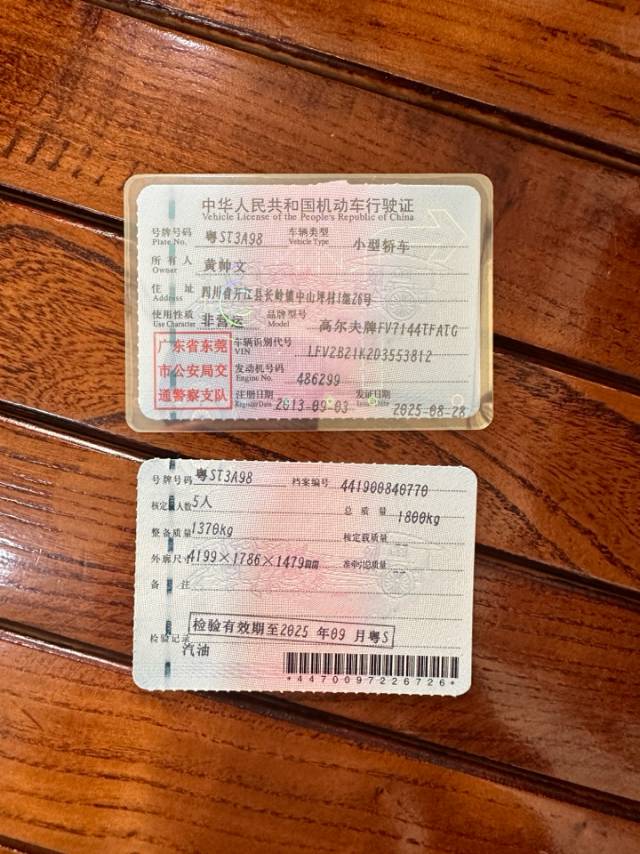 中华人民共和国机动车行驶证
Vehicle License of the People's Republic of China
号牌号码 粤ST3A98 车辆类型 小型轿车
Plate No. Vehicle Type
所有人 黄帅文
Owner
住址 四川省开江县长岭镇中山坪村1组26号
Address
使用性质 非营运 品牌型号 高尔夫牌FV7144TFATG
Use Character Model
广东省东莞
市公安局交
通警察支队
车辆识别代号 LFV2B21K2D3553812
VIN
发动机号码 486299
Engine No.
注册日期 2013-09-03 发证日期 2025-08-28
Register Date Issue Date
号牌号码 粤ST3A98 档案编号 441900840770
核定载人数 5人 总质量 1800kg
整备质量 1370kg 核定载质量 --
外廓尺寸 4199×1786×1479mm 准牵引总质量 --
备注
检验记录 检验有效期至2025年09月粤S
汽油
*4470097226726*